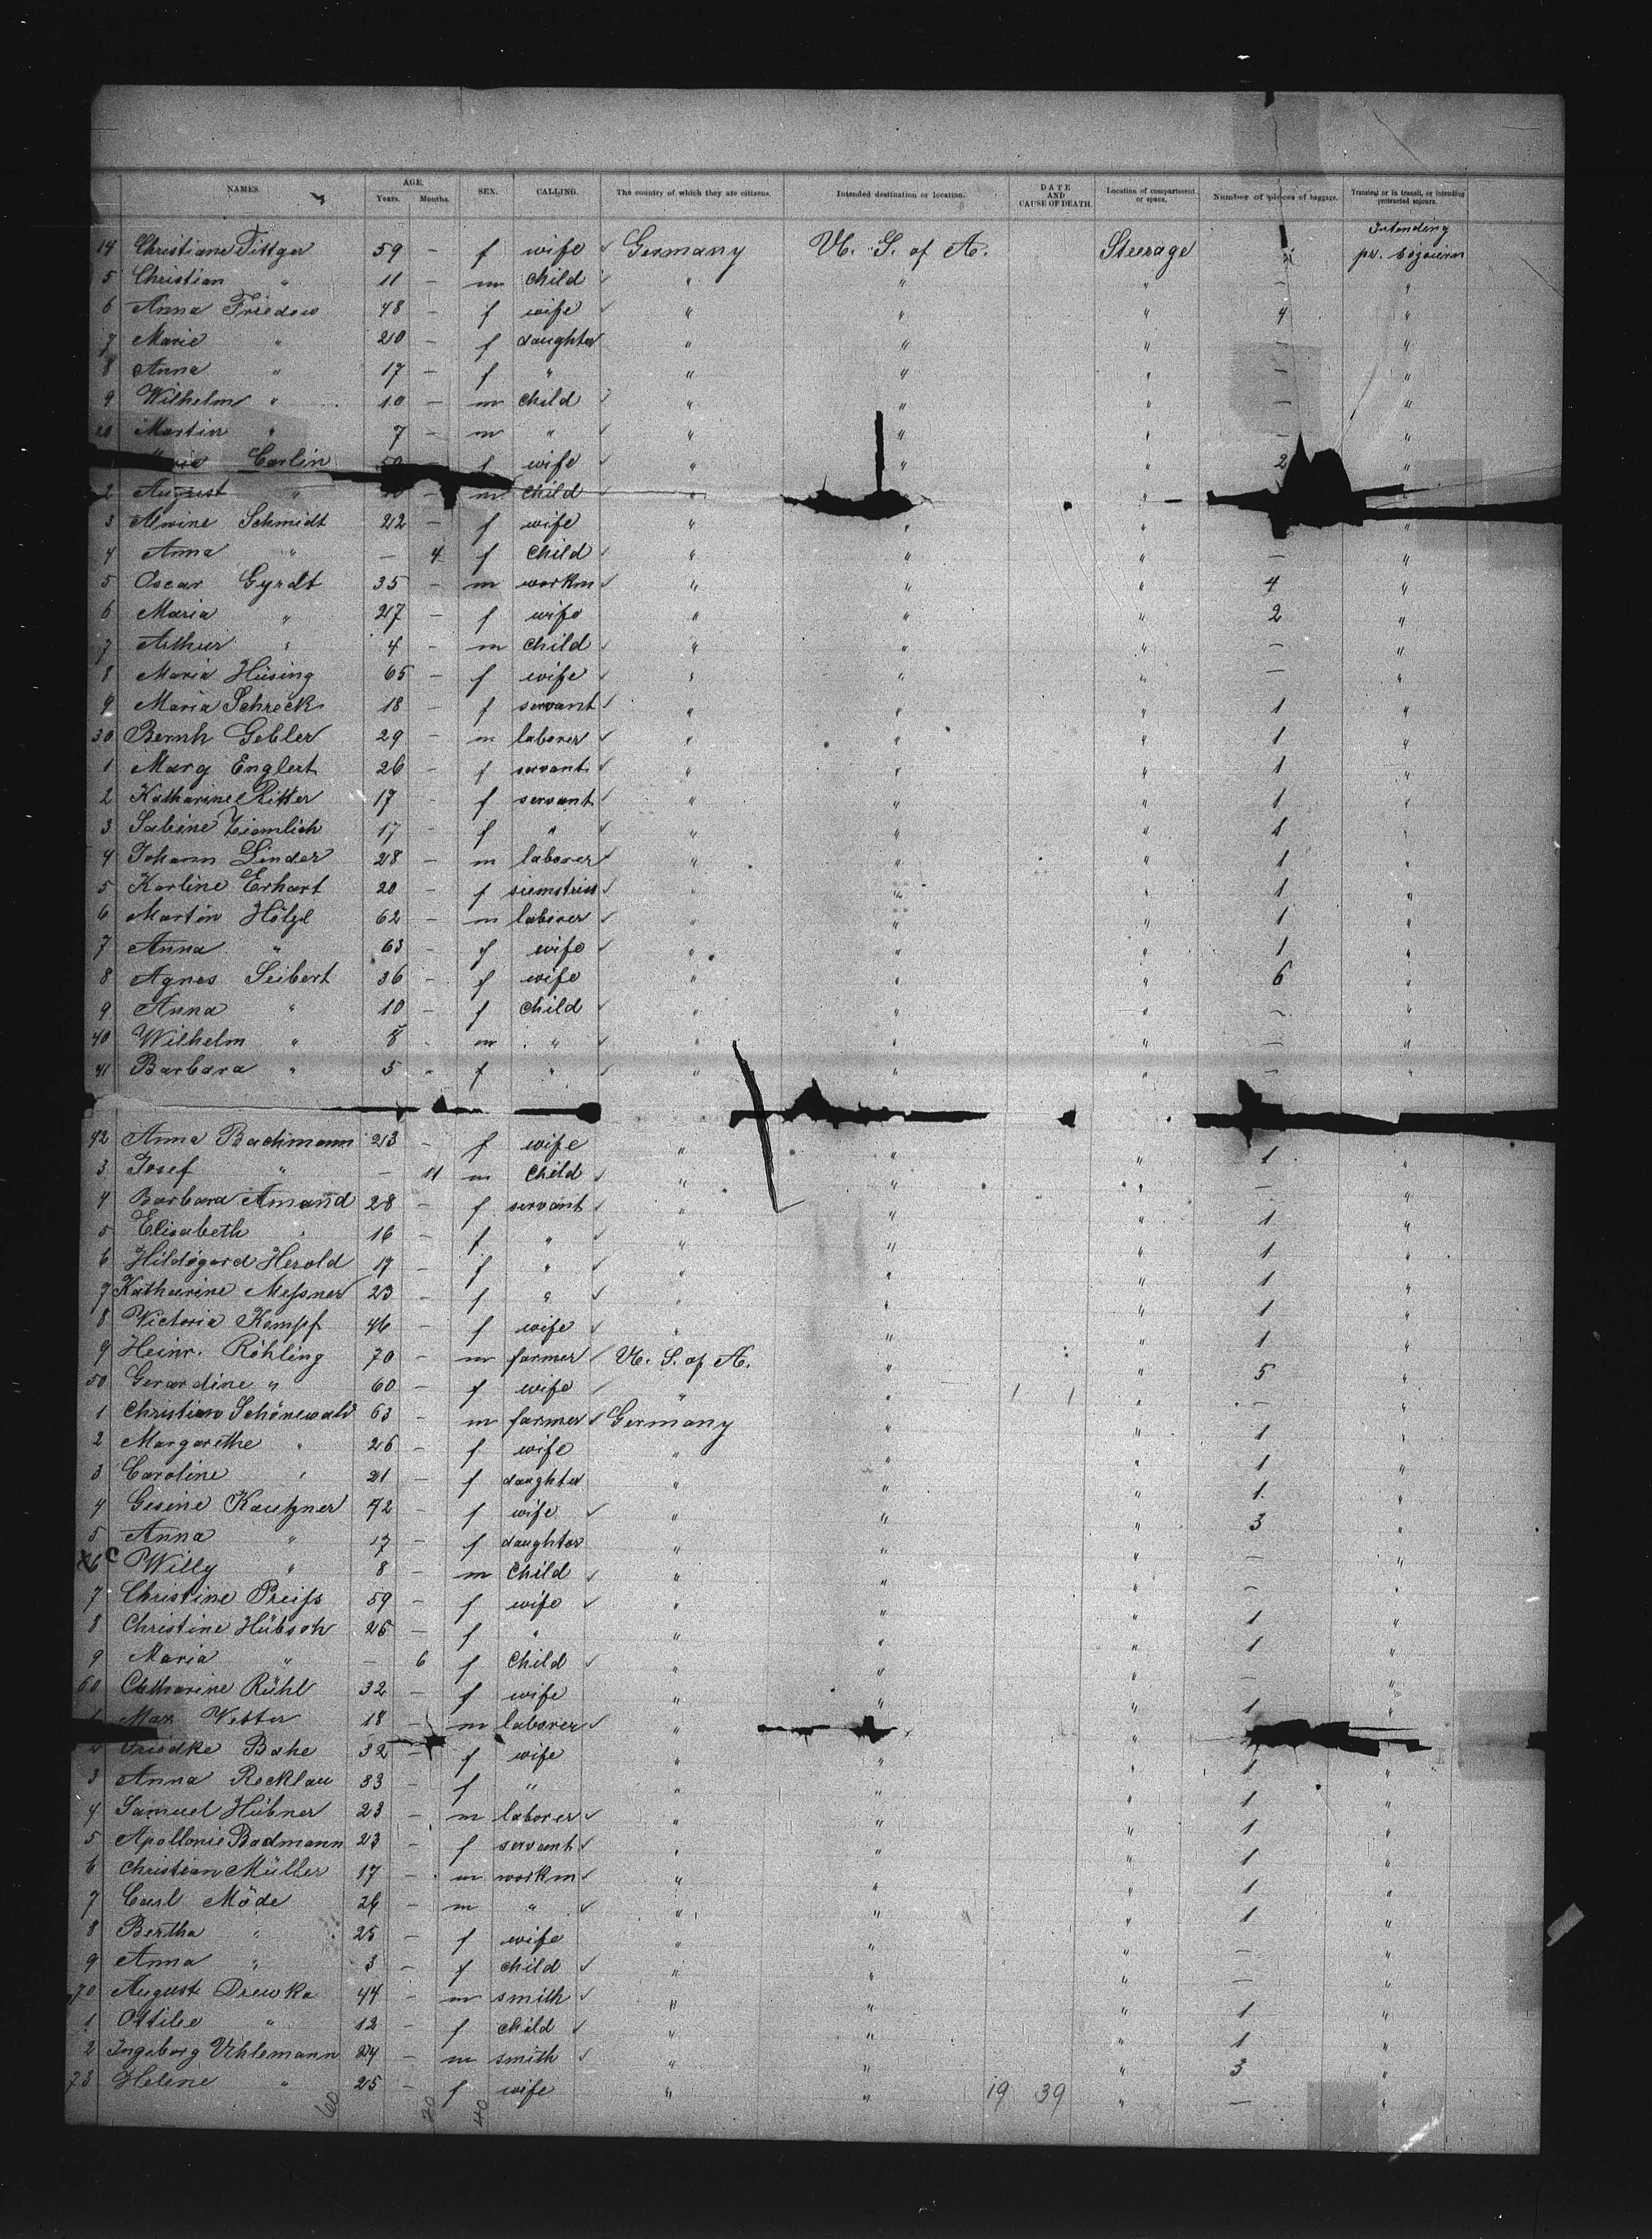 NAMES. AGE. Years. Months. SEX. CALLING. The country of which they are citizens. Intended destination or location. DATE AND CAUSE OF DEATH. Location of compartment or space. Number of pieces of baggage. Transient or in transit, or intending protracted sojourn.
Intending
14 Christiane Tittger 59 — f wife Germany U. S. of A. Steerage pr. sojourn
5 Christian " 11 — m child " " " — "
6 Anna Friedow 48 — f wife " " " 4 "
7 Marie " 20 — f daughter " " " — "
8 Anna " 17 — f " " " " — "
9 Wilhelm " 10 — m child " " " — "
20 Martin " 7 — m " " " " — "
Carlin f wife " " " 2 "
2 August " m child " "
3 Alwine Schmidt 22 — f wife " " " "
4 Anna " — 4 f child " " " — "
5 Oscar Gyrdt 35 — m workm " " " 4 "
6 Maria " 27 — f wife " " " 2 "
7 Arthur " 4 — m child " " " — "
8 Maria Hüsing 65 — f wife " " " — "
9 Maria Schreck 18 — f servant " " " 1 "
30 Bernh Gebler 29 — m laborer " " " 1 "
1 Marg Englert 26 — f servant " " " 1 "
2 Katharine Ritter 17 — f servant " " " 1 "
3 Sabine Ziemlich 17 — f " " " " 1 "
4 Johann Linder 28 — m laborer " " " 1 "
5 Karline Erhart 20 — f siemstriss " " " 1 "
6 Martin Hölzl 62 — m laborer " " " 1 "
7 Anna " 63 — f wife " " " 1 "
8 Agnes Seibert 36 — f wife " " " 6 "
9 Anna " 10 — f child " " " — "
40 Wilhelm " 8 — m " " " " — "
41 Barbara " 5 — f " " " " — "
42 Anna Bachmann 23 — f wife " " " 1 "
3 Josef " — 11 m child " " " — "
4 Barbara Amand 28 — f servant " " " 1 "
5 Elisabeth " 16 — f " " " " 1 "
6 Hildegard Herold 17 — f " " " " 1 "
7 Katharine Messner 23 — f " " " " 1 "
8 Victoria Kempf 46 — f wife " " " 1 "
9 Heinr. Röhling 70 — m farmer U. S. of A. " " 5 "
50 Gerardine " 60 — f wife " " " — "
1 Christian Schönewald 63 — m farmer Germany " " 1 "
2 Margarethe " 26 — f wife " " " 1 "
3 Caroline " 21 — f daughter " " " 1 "
4 Gesine Kautzner 42 — f wife " " " 3 "
5 Anna " 17 — f daughter " " " — "
6 Willy " 8 — m child " " " — "
7 Christine Preiss 59 — f wife " " " 1 "
8 Christine Hübsch 25 — f " " " " 1 "
9 Maria " — 6 f child " " " — "
60 Catharine Rühl 32 — f wife " " " 1 "
Max Vetter 18 — m laborer "
Friedke Bahe 32 — f wife " " " 1 "
3 Anna Rocklau 33 — f " " " " 1 "
4 Samuel Hübner 23 — m laborer " " " 1 "
5 Apollonie Badmann 23 — f servant " " " 1 "
6 Christian Müller 17 — m workm " " " 1 "
7 Carl Möde 26 — m " " " " 1 "
8 Bertha " 25 — f wife " " " — "
9 Anna " 3 — f child " " " — "
70 August Drewka 44 — m smith " " " 1 "
1 Ottilie " 12 — f child " " " 1 "
2 Ingeborg Uhlemann 24 — m smith " " " 3 "
73 Helene " 25 — f wife " " 19 39 " — "
60 20 40